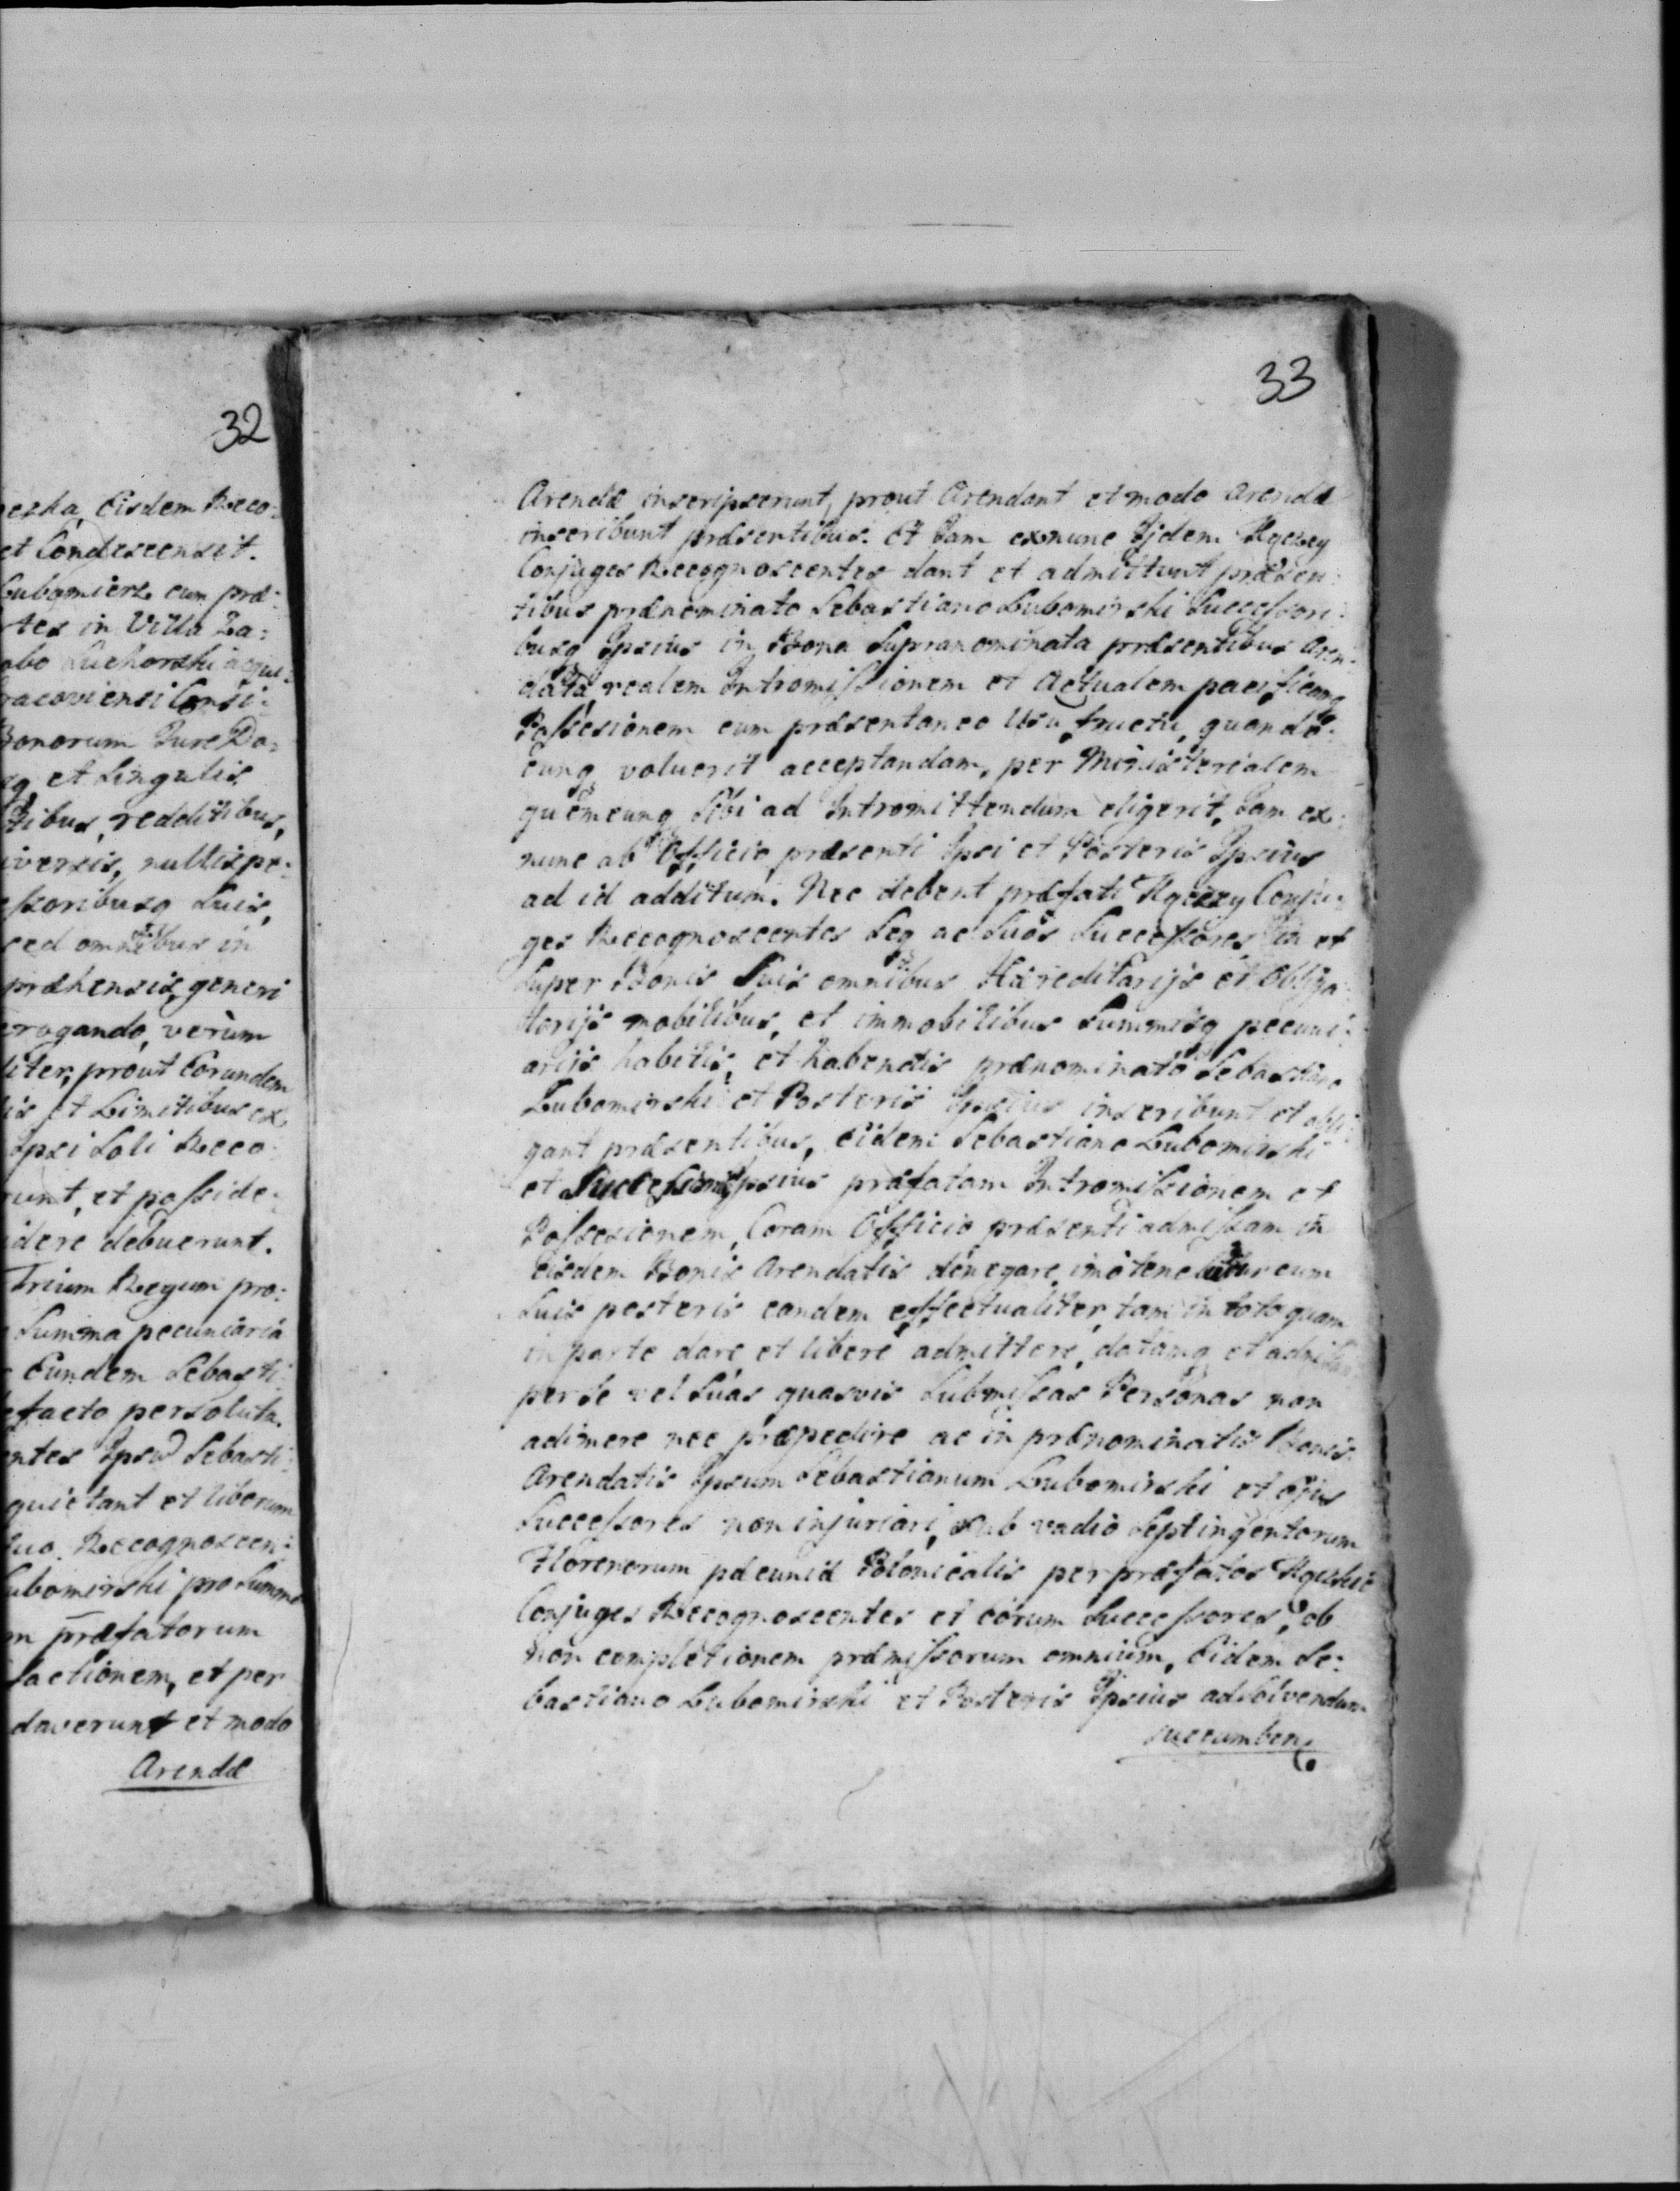 32
eska, Eisdem Reco:
et Condescensit.
Lubomierz cum præ:
tes in Villa Za:
obo Suchorski acqui:
racoviensi Consi:
Bonorum Jure Do:
q, et Singulis
tibus, redditibus,
iversis, nullis pe:
ssoribusq Suis,
sed omnibus in
præhensis, generi
erogando, verùm
liter, prout Eorundem
is et Limitibus ex
Ipsi Soli Reco
runt, et posside:
idere debuerunt.
Trium Regum pro:
Summa pecuniaria
Eundem Sebasti
efacto persoluta.
entes Ipsũ Sebasti:
quietant et liberum
suo Recognoscen:
Lubomirski pro Summa
m præfatorum
factionem, et per
daverunt et modo
Arendæ
33
Arendæ inscripserunt, prout Arendant et modo Arendæ
inscribunt præsentibus. Et Jam exnunc Ijdem Kęczey
Conjuges Recognoscentes dant et admittunt præsen:
tibus prænominato Sebastiano Lubomirski Successori:
busq Ipsius in Bona Supranominata præsentibus Aren:
data, realem Intromissionem et Actualem pacificamq
Possesionem cum præsentaneo Usu, fructu, quando:
cunq voluerit acceptandam, per Ministerialem
quemcunq Sibi ad Intromittendum eligerit, Jam ex:
nunc ab Officio præsenti Ipsi et Posteris Ipsius
ad id additum. Nec debent præfati Kęczey Conju:
ges Recognoscentes Seq ac Suos Successores in et
Super Bonis Suis omnibus Hæreditarijs et Obliga
torijs mobilibus, et immobilibus Summisq pecuni:
ariis habitis, et habendis prænominato Sebastiano
Lubomirski et Posteris Ipsius inscribunt et obli:
gant præsentibus, eidem Sebastiano Lubomirski
et Ipsius præfatam Intromissionem et
Possesionem, Coram Officio præsenti admissam in
Eisdem Bonis Arendatis denegare, imò cum
Suis posteris eandem effectualiter, tam in toto quam
in parte dare et libere admittere, datamq et
per Se vel Suas, quasvis Submissas Personas non
adimere nec præpedire ac in prænominatis Bonis
Arendatis Ipsum Sebastianum Lubomirski et Ejus
Successores non injuriari, sub vadio Septingentorum
Florenorum pecuniæ Polonicalis per præfatos
Conjuges Recognoscentes et Eorum Successores, ob
non completionem præmissorum omnium, Eidem Se:
bastiano Lubomirski et Posteris Ipsius adsolvendum
succumben